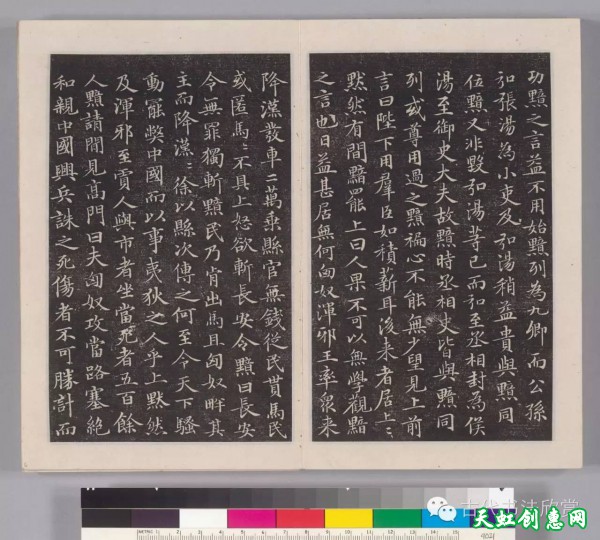 功黯之言益不用始黯列為九卿而公孫
弘張湯為小吏及弘湯稍益貴與黯同
位黯又非毀弘湯等已而弘至丞相封為侯
湯至御史大夫故黯時丞相史皆與黯同
列或尊用過之黯褊心不能無少望見上前
言曰陛下用羣臣如積薪耳後来者居上〻
黙然有間黯罷上曰人果不可以無學觀黯
之言也日益甚居無何匈奴渾邪王率衆来
降漢發車二萬乗縣官無錢從民貰馬民
或匿馬〻不具上怒欲斬長安令黯曰長安
令無罪獨斬黯民乃肯出馬且匈奴畔其
主而降漢〻徐以縣次傳之何至令天下騷
動罷弊中國而以事夷狄之人乎上黙然
及渾邪至賈人與市者坐當死者五百餘
人黯請間見高門曰夫匈奴攻當路塞絶
和親中國興兵誅之死傷者不可勝計而
古代书法欣赏
天虹创意网